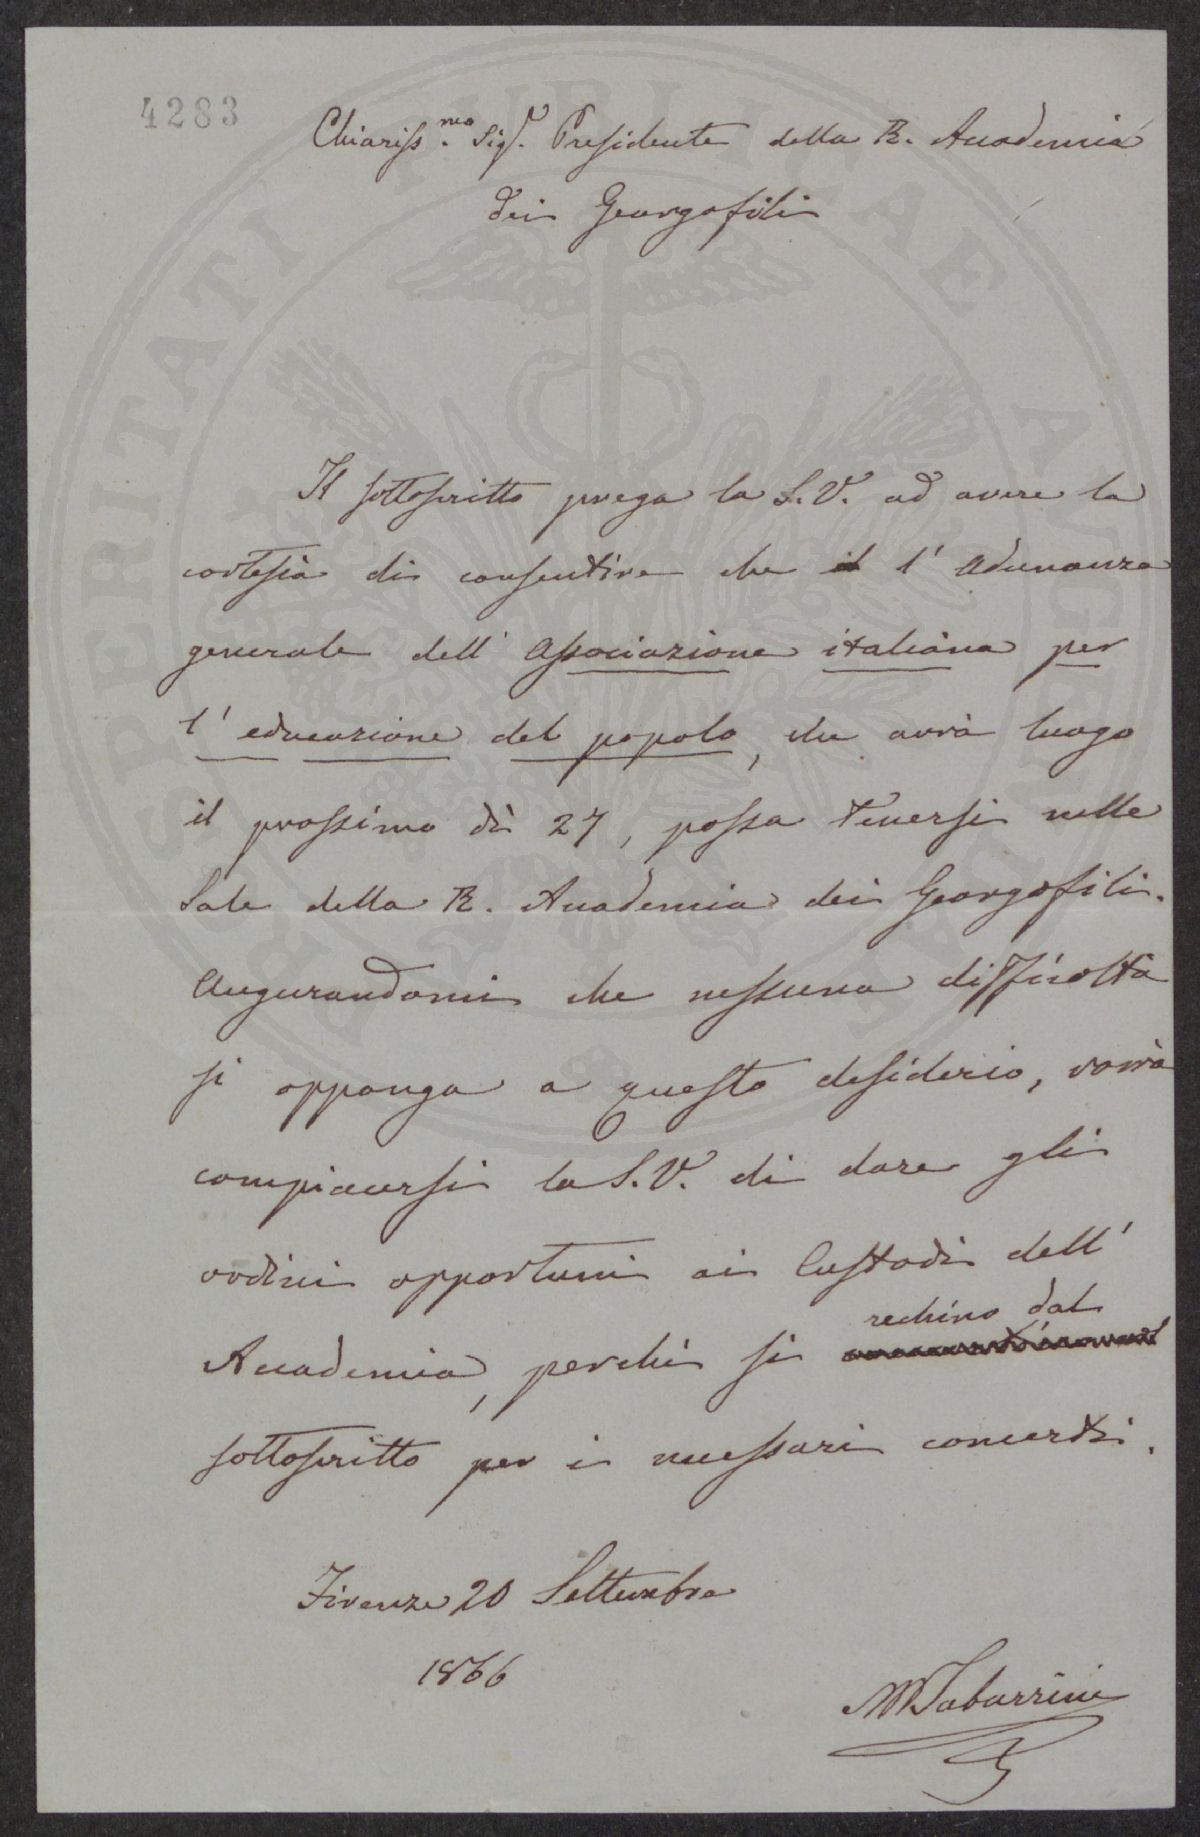 4283
Chiariss.mo Sigr. Presidente della R. Accademia
dei Georgofili
Il sottoscritto prega la S.V. ad avere la
cortesia di consentire che il l' Adunanza
generale dell' Associazione italiana per
l' educazione del popolo, che avrà luogo
il prossimo dì 27, possa tenersi nelle
Sale della R. Accademia dei Georgofili.
Augurandomi che nessuna difficoltà
si opponga a questo desiderio, vorrà
compiacersi la S.V. di dare gli
ordini opportuni ai Custodi dell'
rechino dal
Accademia, perchè si
sottoscritto per i necessari concerti.
Firenze 20 Settembre
1866
M Tabarrini
PROSPERITATI PUBLICAE AUGENDAE